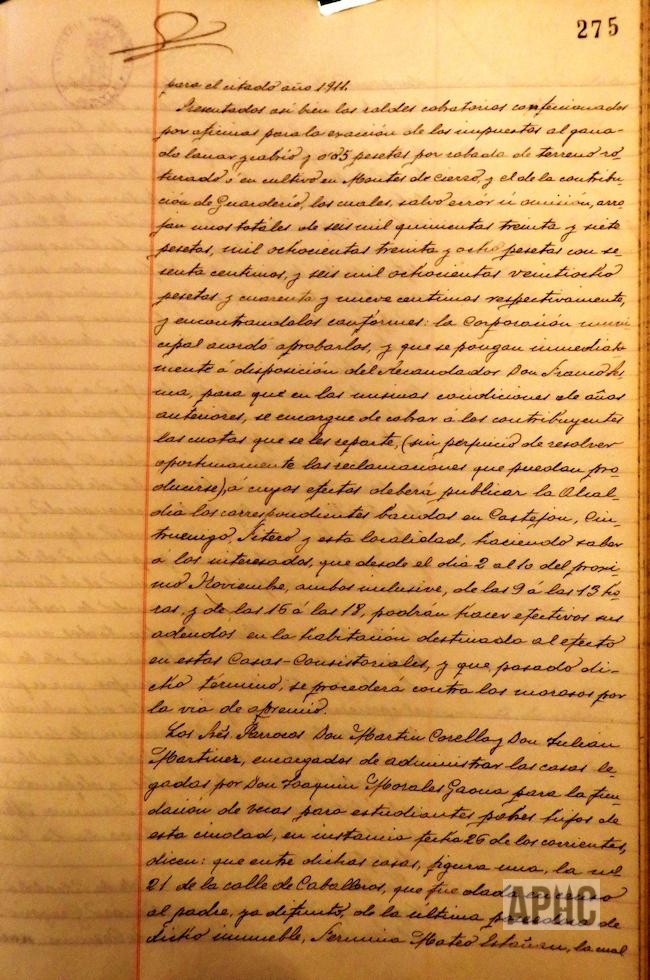 275
para el citado año 1911.
Presentados asi bien las roldes cobatorias confeccionados
por oficinas para la exacción de los impuestos al gana-
do lanar y cabrio y 0'85 pesetas por robada de terreno ro-
turado ó en cultivo en Montes de Cierzo, y el de la contribu-
ción de Guarderio, los cuales, salvo error ú omisión, arro
jan unos totales de seis mil quinientas treinta y siete
pesetas, mil ochocientas treinta y ocho pesetas con se-
senta centimos, y seis mil ochocientas veintiocho
pesetas y cuarenta y nueve centimos respectivamente,
y encontrandolos conformes: la Corporación muni
cipal acordó aprobarlos, y que se pongan inmediata
mente á disposición del Recaudador Don Franco
ma, para que en las mismas condiciones de años
anteriores, se encargue de cobrar á los contribuyentes
las cuotas que se les reparte, (sin perjuicio de resolver
oportunamente las reclamaciones que puedan pro
ducirse), á cuyos efectos deberá publicar la Alcal-
dia los correspondientes bandos en Castejon, Cin-
truenigo, Fitero y esta localidad, haciendo saber
á los interesados, que desde el dia 2 al 10 del proxi-
mo Noviembre, ambos inclusive, de las 9 á las 13 ho-
ras y de las 15 á las 18, podrán hacer efectivos sus
adeudos en la habitación destinada al efecto
en estas Casas-Consistoriales, y que pasado di-
cho término, se procederá contra los morosos por
la via de apremio.
Los Srés Parrocos Don Martin Corella y Don Julian
Martinez, encargados de administrar las casas le-
gadas por Don Joaquin Morales Gaona para la fun-
dación de becas para estudiantes pobres hijos de
esta ciudad, en instancia fecha 26 de los corrientes,
dicen: que entre dichas casas, figura una, la nº
21 de la calle de Caballeros, que fue dada
al padre, ya difunto, de la última poseedora de
dicho inmueble, Fermina Mateo la cual
APHC